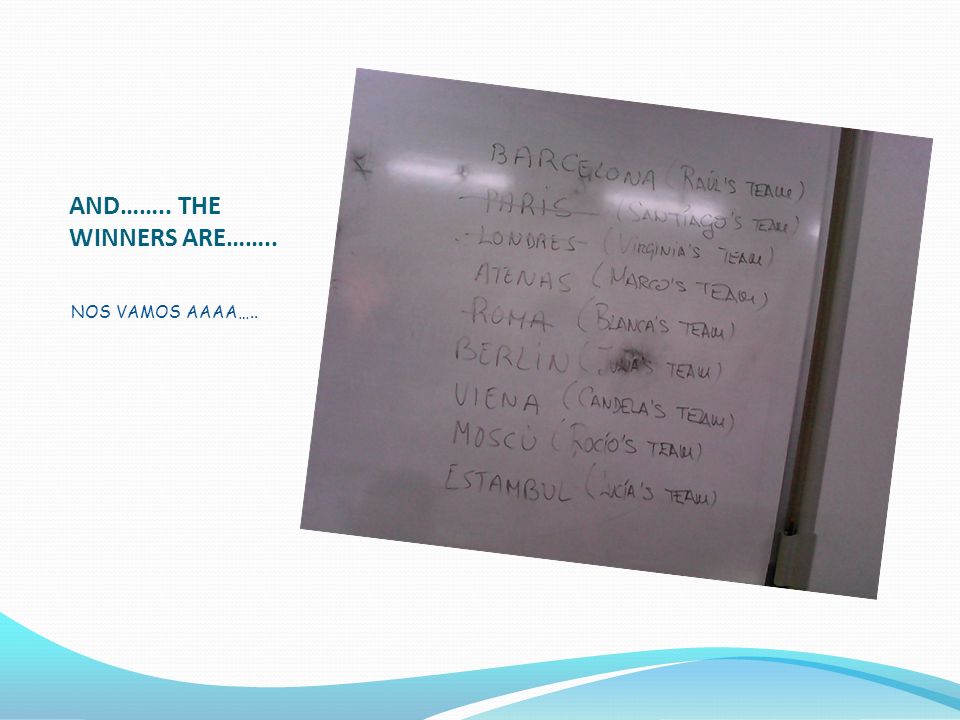 AND…….. THE
WINNERS ARE……..
NOS VAMOS AAAA…..
BARCELONA (RAÚL'S TEAM)
PARIS (SANTÍAGO'S TEAM)
LONDRES (VIRGINIA'S TEAM)
ATENAS (MARCO'S TEAM)
ROMA (BLANCA'S TEAM)
BERLIN (JULIA'S TEAM)
VIENA (CANDELA'S TEAM)
MOSCÚ (ROCÍO'S TEAM)
ESTAMBUL (LUCÍA'S TEAM)